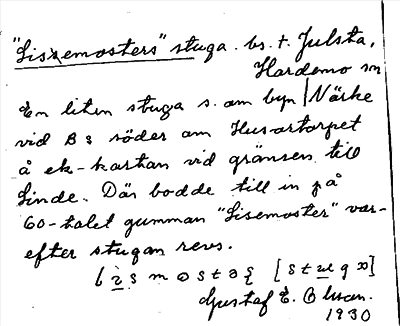 "Sissemosters" stuga. bs. t. Julsta,
Hardemo sn
En liten stuga s. om byn / Närke
vid B 8 söder om Husartorpet
å ek-kartan vid gränsen till
Linde. Där bodde till in på
60-talet gumman "Sisemoster" var-
efter stugan revs.
[stuga]
Gustaf E. Olsson.
1930